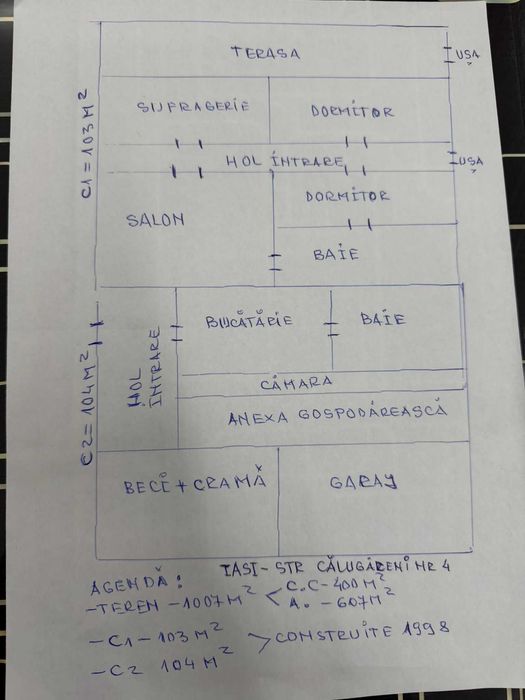 TERASA
USA
SUFRAGERIE
DORMITOR
C1 = 103 M²
HOL ÎNTRARE
USA
DORMITOR
SALON
BAIE
BUCĂTĂRIE
BAIE
HOL
ÎNTRARE
C2 = 104 M²
CĂMARA
ANEXA GOSPODĂREASCĂ
BECI + CRAMĂ
GARAJ
IASI - STR CĂLUGĂRENI NR 4
AGENDĂ:
- TEREN - 1007 M² < C.C - 400 M²
A. - 607 M²
- C1 - 103 M² > CONSTRUITE 1998
- C2 104 M²